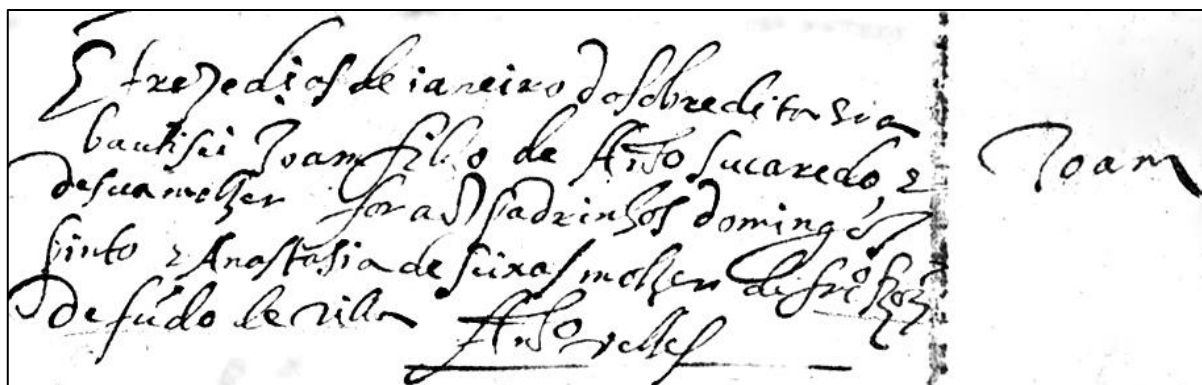 E treze dias de ianeiro do sobredito
bautisei Joam filho de Anto Sucaredo, e
de sua molher forão padrinhos domingos
pinto e Anastasia de molher de frco
de fũdo de villa Anto velles
Joam